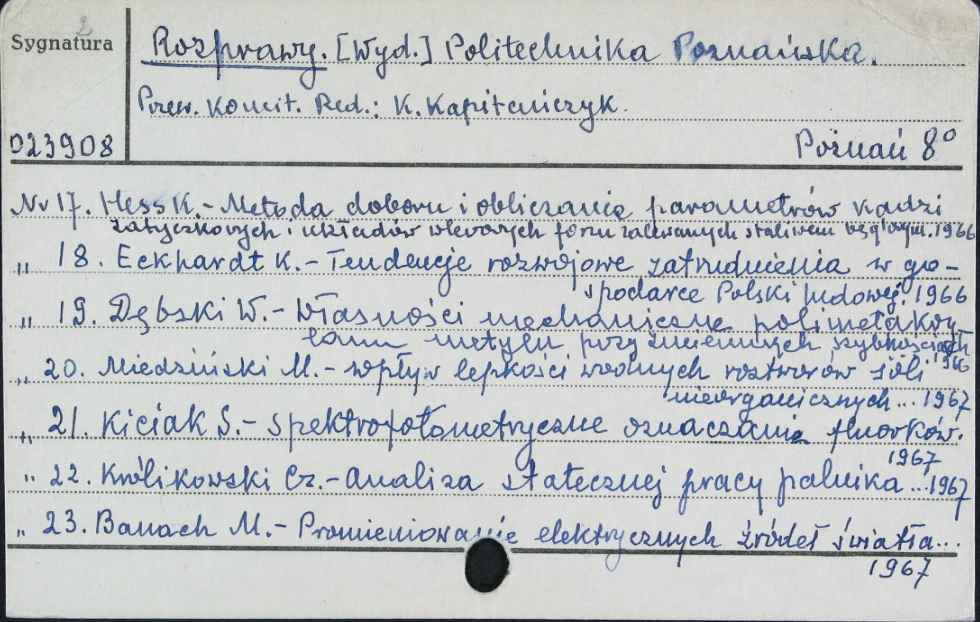 2
Sygnatura
Rozprawy. [Wyd.] Politechnika Poznańska.
Przew. Komit. Red.: K. Kapitańczyk.
023908
Poznań 8°
Nr 17. Hess K. - Metoda doboru i obliczania parametrów kadzi
zatyczkowych i układów wlewowych form zalewanych staliwem węglowym. 1966
„ 18. Eckhardt K. - Tendencje rozwojowe zatrudnienia w go-
spodarce Polski Ludowej. 1966
„ 19. Dębski W. - Własności mechaniczne polimetakry-
lanu metylu przy zmiennych szybkościach
1966
„ 20. Miedziński M. - Wpływ lepkości wodnych roztworów soli
nieorganicznych... 1967
„ 21. Kiciak S. - Spektrofotometryczne oznaczania fluorków.
1967
„ 22. Królikowski Cz. - Analiza statecznej pracy palnika... 1967
„ 23. Banach M. - Promieniowanie elektrycznych źródeł światła...
1967